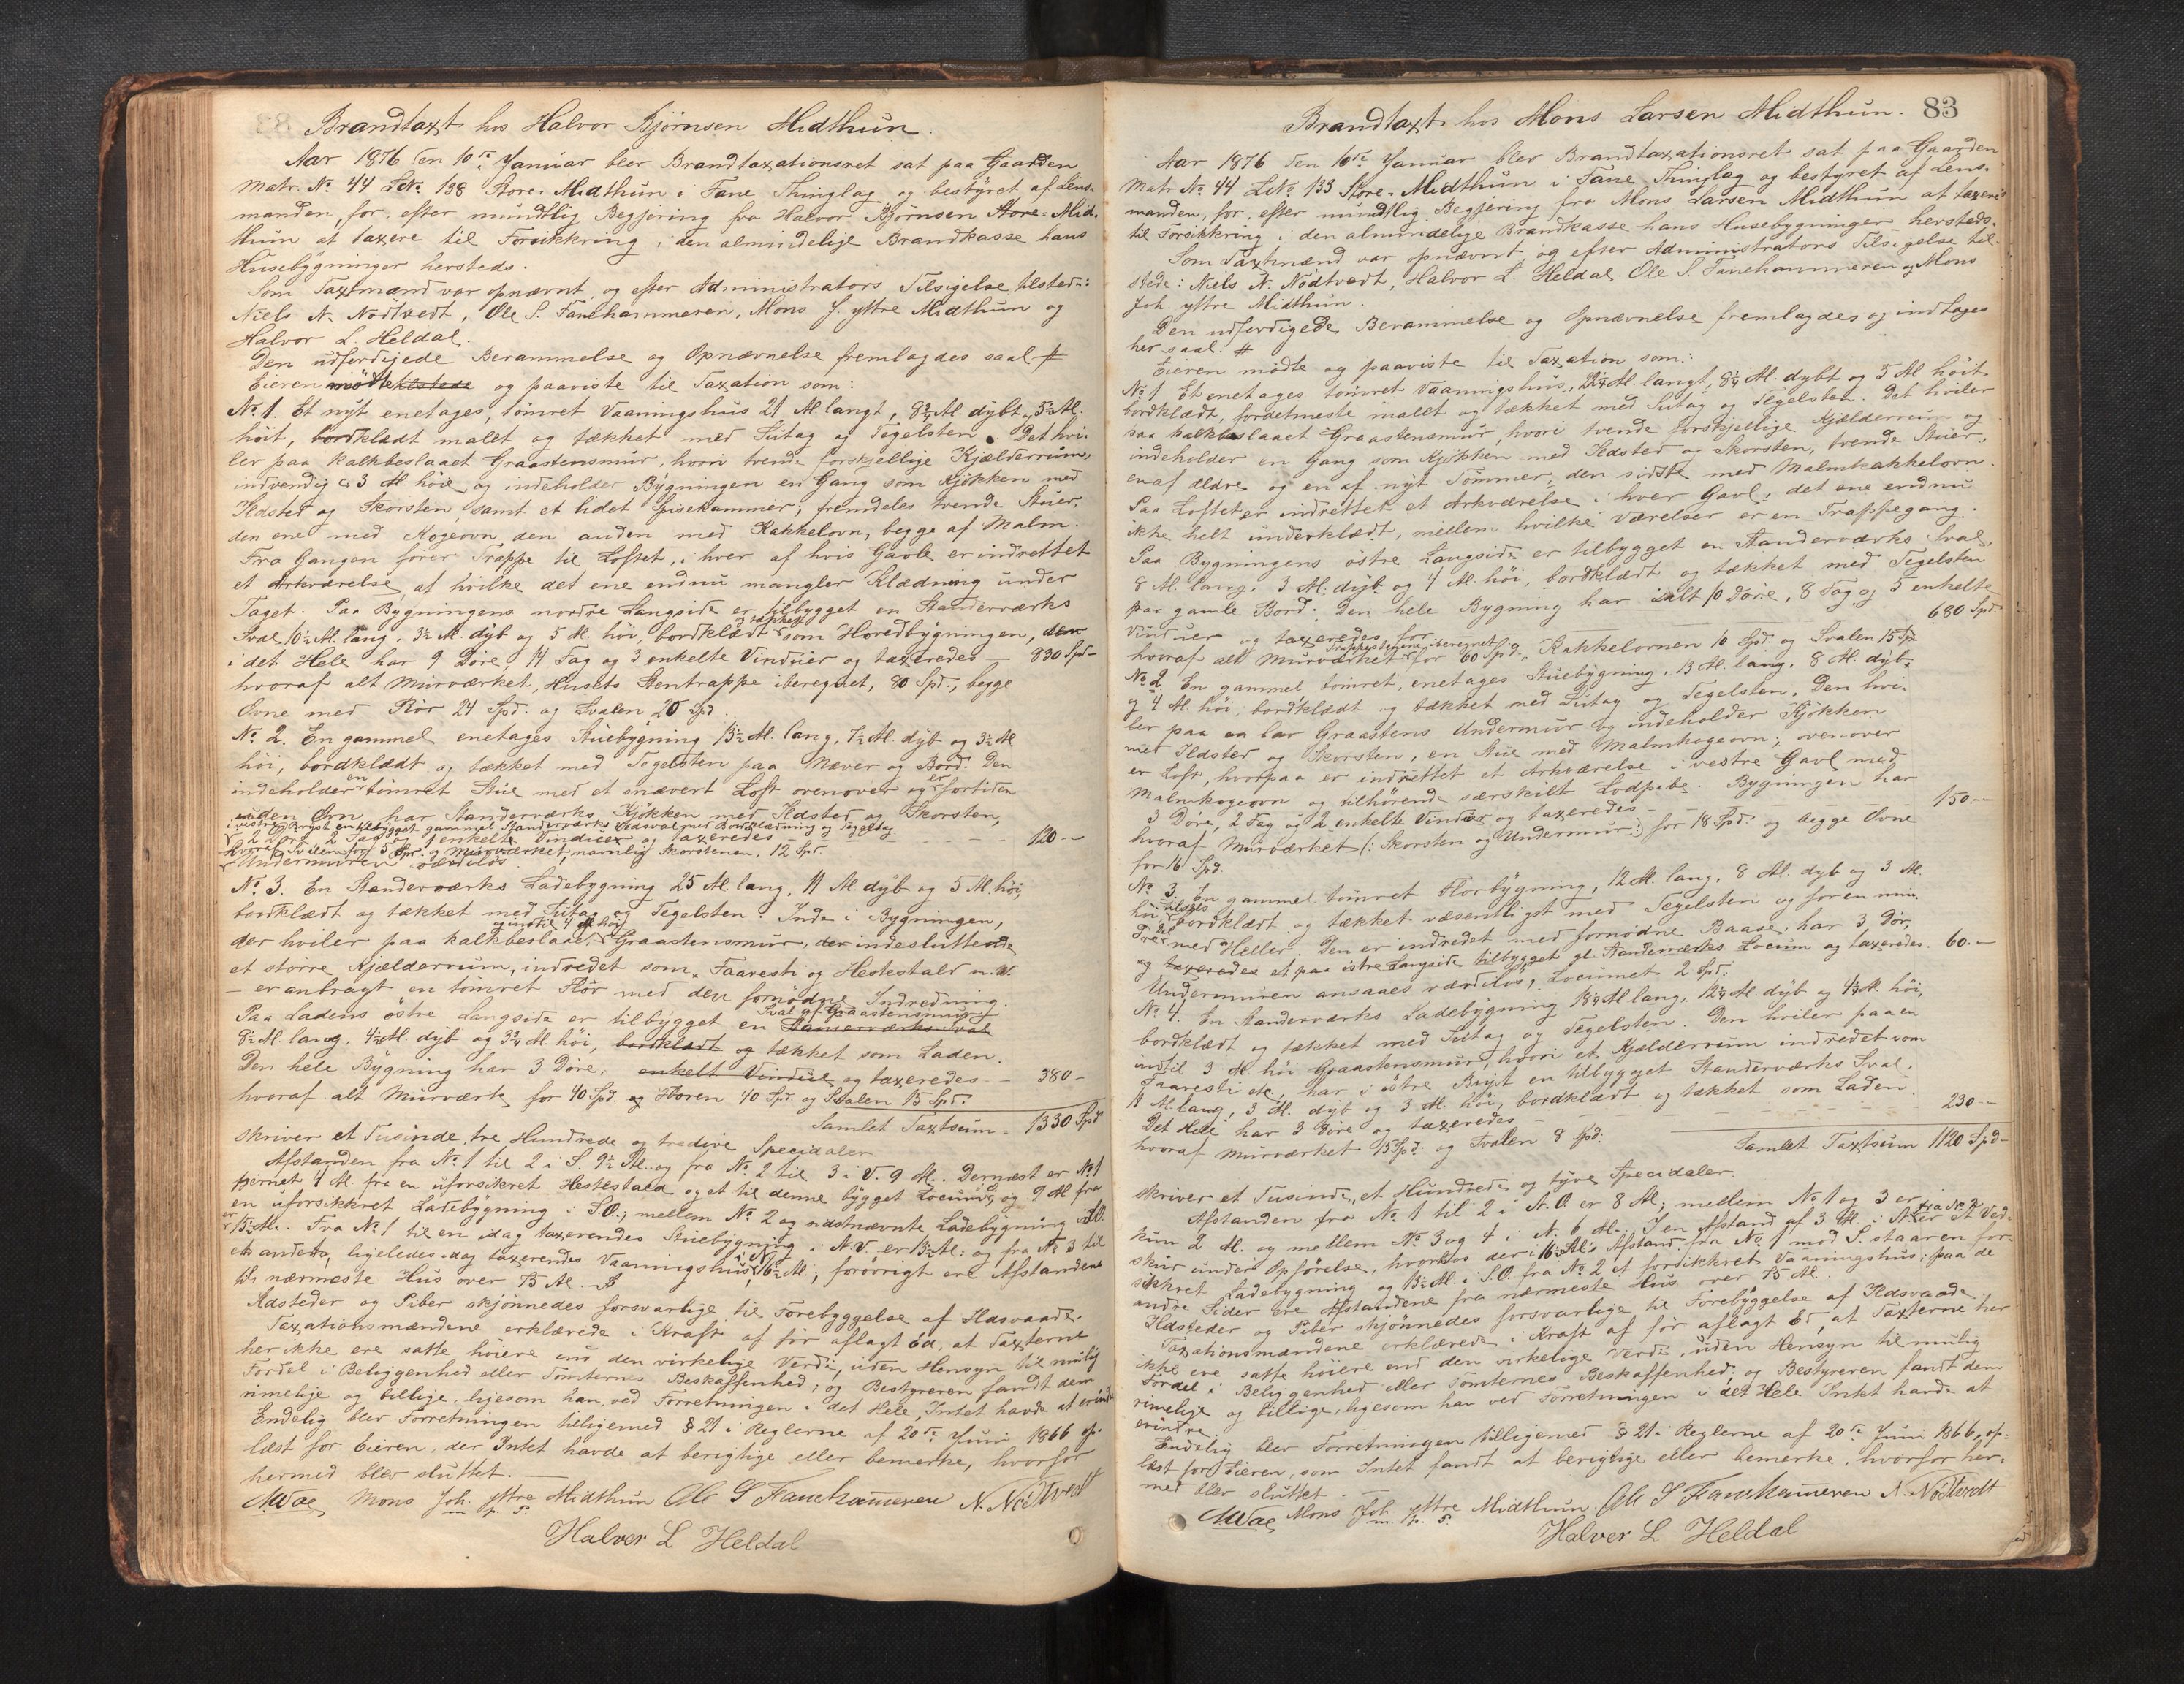 Brandtaxt hos Halvor Bjørnsen Midthun.
Aar 1876 den 10de Januar blev Brandtaxationsret sat paa Gaarden
Matr. No 44 LNo 138 Store-Midthun i Fane Thinglag og bestyret af Lens-
manden, for, efter mundtlig Begjering fra Halvor Bjørnsen Store-Mid-
thun at taxere til Forsikkring i den almindelige Brandkasse hans
Husebygninger hersteds.
Som Taxtmænd var opnævnt, og efter Administrators Tilsigelse tilstede:
Niels N. Nødtvedt, Ole S. Fanehammeren, Mons J. ytre Midthun og
Halvor L. Heldal.
Den udferdigede Berammelse og Opnævnelse fremlagdes saal. #
Eieren mødte og paaviste til Taxation som:
No 1. Et nyt enetages, tømret Vaaningshus 21 Al. langt, 8¾ Al. dybt, 5½ Al.
høit, bordklædt malet og tækket med Sutag og Tegelsten. Det hvi-
ler paa kalkbeslaaet Graastensmur, hvori tvende forskjellige Kjælderrum,
indvendig ca 3 Al. høie og indeholder Bygningen en Gang som Kjøkken med
Ildsted og Skorsten, samt et lidet Spisekammer; fremdeles tvende Stuer,
den ene med Kogeovn, den anden med Kakkelovn, begge af Malm.
Fra Gangen fører Trappe til Loftet, i hver af hvis Gavle er indrettet
et Arkværelse, af hvilke det ene endnu mangler Klædning under
Taget. Paa Bygningens nordre Langside er tilbygget en Standerværks
Sval 10½ Al. lang, 3½ Al. dyb og 5 Al. høi, bordklædt og tækket som Hovedbygningen, der
i det Hele har 9 Døre, 11 Fag og 3 enkelte Vinduer og taxeredes — 830 Spd -
hvoraf alt Murværket, Husets Stentrappe iberegnet, 80 Spd., begge
Ovne med Rør 24 Spd. og Svalen 20 Spd.
No 2. En gammel enetages Stuebygning 13½ Al. lang, 7½ Al. dyb og 3½ Al.
høi, bordklædt og tækket med Tegelsten paa Næver og Bord. Den
indeholder en tømret Stue med et snævert Loft ovenover og er fortiden
uden Ovn, har Standerværks Kjøkken med Ildsted og Skorsten,
i vestre Bryst en tilbygget gammel Standerværks Vedsval med Bordklædning og Tegeltag
2 Døre, 2 Fag og 1 enkelte Vinduer og taxeredes — 120 -
Hvoraf Svalen for 5 Spd. og Murværket, namlig Skorstenen, 12 Spd.
Undermuren værdiløs
No 3. En Standerværks Ladebygning 25 Al. lang, 11 Al. dyb og 5 Al. høi,
bordklædt og tækket med Sutag og Tegelsten. Inde i Bygningen,
der hviler paa kalkbeslaaet, og indtil 4 Al. høi Graastensmur, der indesluttende
et større Kjælderrum, indredet som Faaresti og Hestestald m.M.
— er anbragt en tømret Flor med den fornødne Indredning.
Paa Ladens østre Langside er tilbygget en Standerværks Sval Sval af Graastensmur
8½ Al. lang, 4½ Al. dyb og 3¾ Al. høi, bordklædt og tækket som Laden.
Den hele Bygning har 3 Døre, enkelt Vindue og taxeredes — 380 -
hvoraf alt Murværk for 40 Spd. og Floren 40 Spd. og Svalen 15 Spd.
Samlet Taxtsum = 1330 Spd
skriver et Tusinde, tre Hundrede og tredive Specidaler
Afstanden fra No 1 til 2 i S. 9½ Al. og fra No 2 til 3 i V. 9 Al. Dernæst er No 1
fjernet 4 Al. fra en uforsikret Hestestald og et til denne bygget Locum, og 9 Al. fra
en uforsikkret Ladebygning i S.O.; mellem No 2 og sidstnævnte Ladebygning i S.O.
er 15½ Al. Fra No 1 til en idag taxerendes Stuebygning i N.V. er 13½ Al.: og fra No 3 til
et andet, ligeledes idag taxerendes Vaaningshus, 16½ Al.; forøvrigt ere Afstandene
til nærmeste Hus over 15 Al.
Ildsteder og Piber skjønnedes forsvarlige til Forebyggelse af Ildsvaade.
Taxationsmændene erklærede i Kraft af før aflagt Ed, at Taxterne
her ikke ere satte høiere end den virkelige Verdi, uden Hensyn til mulig
Fordel i Beliggenhed eller Tomternes Beskaffenhed; og Bestyreren fandt dem
rimelige og billige, ligesom han ved Forretningen i det Hele Intet havde at erindre
Endelig blev Forretningen tilligemed § 21 i Reglerne af 20de Juni 1866 op-
læst for Eieren, der Intet havde at berigtige eller bemerke, hvorfor
hermed blev sluttet.
Mons Joh. ytre Midthun Ole S Fanehammeren N. Nødtvedt
m. p. P.
Halver L Heldal
83
Brandtaxt hos Mons Larsen Midthun.
Aar 1876 den 10de Januar blev Brandtaxationsret sat paa Gaarden
Matr No 44 LNo 133 Store-Midthun i Fane Thinglag og bestyret af Lens-
manden, for, efter mundtlig Begjering fra Mons Larsen Midthun at taxere
til Forsikkring i den almindelige Brandkasse hans Husebygninger hersteds.
Som Taxtmænd var opnævnt, og efter Administrators Tilsigelse til-
stede: Niels N. Nødtvedt, Halvor L. Heldal, Ole S. Fanehammeren og Mons
Joh. yttre Midthun.
Den udferdigede Berammelse og Opnævnelse fremlagdes og indtages
her saal. #
Eieren mødte og paaviste til Taxation som:
No 1 Et enetages tømret Vaaningshus, 22¼ Al. langt, 8¼ Al. dybt og 5 Al. høit
bordklædt, fordetmeste malet og tækket med Sutag og Tegelsten. Det hviler
paa kalkbeslaaet Graastensmur, hvori tvende forskjellige Kjælderrum og
indeholder en Gang som Kjøkken med Ildsted og Skorsten, tvende Stuer,
en af ældre og en af nyt Tømmer, den sidste med Malmkakkelovn.
Paa Loftet er indrettet et Arkværelse i hver Gavl, det ene endnu
ikke helt underklædt, mellem hvilke Værelser er en Trappegang.
Paa Bygningens østre Langside er tilbygget en Standerværks Sval,
8 Al. lang, 3 Al. dyb og 4 Al. høi, bordklædt og tækket med Tegelsten
paa gamle Bord. Den hele Bygning har ialt 10 Døre, 8 Fag og 5 enkelte
Vinduer og taxeredes for — 680 Spd.
hvoraf alt Murværket, Trappestenene iberegnet for 60 Spd., Kakkelovnen 10 Spd. og Svalen 15 Spd
No 2. En gammel tømret, enetages Stuebygning, 13 Al. lang, 8 Al. dyb
og 4 Al. høi, bordklædt og tækket med Sutag og Tegelsten. Den hvi-
ler paa en lav Graastens Undermur og indeholder Kjøkken
med Ildsted og Skorsten, en Stue med Malmkogeovn; ovenover
er Loft, hvorpaa er indrettet et Arkværelse i vestre Gavl med
Malmkogeovn og tilhørende særskilt Lodpibe. Bygningen har
3 Døre, 2 Fag og 2 enkelte Vinduer og taxeredes — 150.-
hvoraf Murværket (: Skorsten og Undermur:) for 18 Spd. og begge Ovne
for 16 Spd.
No 3. En gammel tømret Florbygning, 12 Al. lang, 8 Al. dyb og 3 Al.
høi bordklædt og tækket væsentligst med Tegelsten og foren min
Del med Heller. Den er indredet med fornødne Baase, har 3 Dør,
og taxeredes et paa østre Langside tilbygget gl. Standerværks Locum og taxeredes. 60.-
Undermuren ansaaes værdiløs, Locumet 2 Spd.
No 4. En Standerværks Ladebygning 18¼ Al. lang, 12¼ Al. dyb og 4¼ Al. høi,
bordklædt og tækket med Sutag og Tegelsten. Den hviler paa en
indtil 3 Al. høi Graastensmur, hvori et Kjælderrum indredet som
Faaresti etc., har i østre Bryst en tilbygget Standerværks Sval,
11 Al. lang, 3 Al. dyb og 3 Al. høi, bordklædt og tækket som Laden.
Det Hele har 3 Døre og taxeredes — 230 -
hvoraf Murværket 15 Spd. og Svalen 8 Spd.
Samlet Taxtsum 1120 Spd -
skriver et Tusinde, et Hundrede og tyve Specidaler.
Afstanden fra No 1 til 2 i N.O. er 8 Al; mellem No 1 og 3 er
kun 2 Al. og mellem No 3 og 4 i N. 6 Al. I en Afstand af 3 Al. i N. fra No 2 er et Ved-
skur under Opførelse, hvorhos der i 16½ Al's Afstand fra No 1 mod S. staar en for-
sikkret Ladebygning og 13½ Al. i S.O. fra No 2 et forsikkret Vaaningshus; paa de
andre Sider ere Afstandene fra nærmeste Hus over 15 Al.
Ildsteder og Piber skjønnedes forsvarlige til Forebyggelse af Ildsvaade.
Taxationsmændene erklærede i Kraft af før aflagt Ed, at Taxterne her
ikke ere satte høiere end den virkelige Verdi, uden Hensyn til mulig
Fordel i Beliggenhed eller Tomternes Beskaffenhed; og Bestyreren fandt dem
rimelige og billige, ligesom han ved Forretningen i det Hele Intet havde at
erindre.
Endelig blev Forretningen tilligemed § 21 i Reglerne af 20de Juni 1866, op-
læst for Eieren, som Intet fandt at berigtige eller bemerke, hvorfor her-
med blev sluttet.
Mons Joh. yttre Midthun. Ole S Fanehammeren N. Nødtvedt
m. p. P.
Halver L Heldal